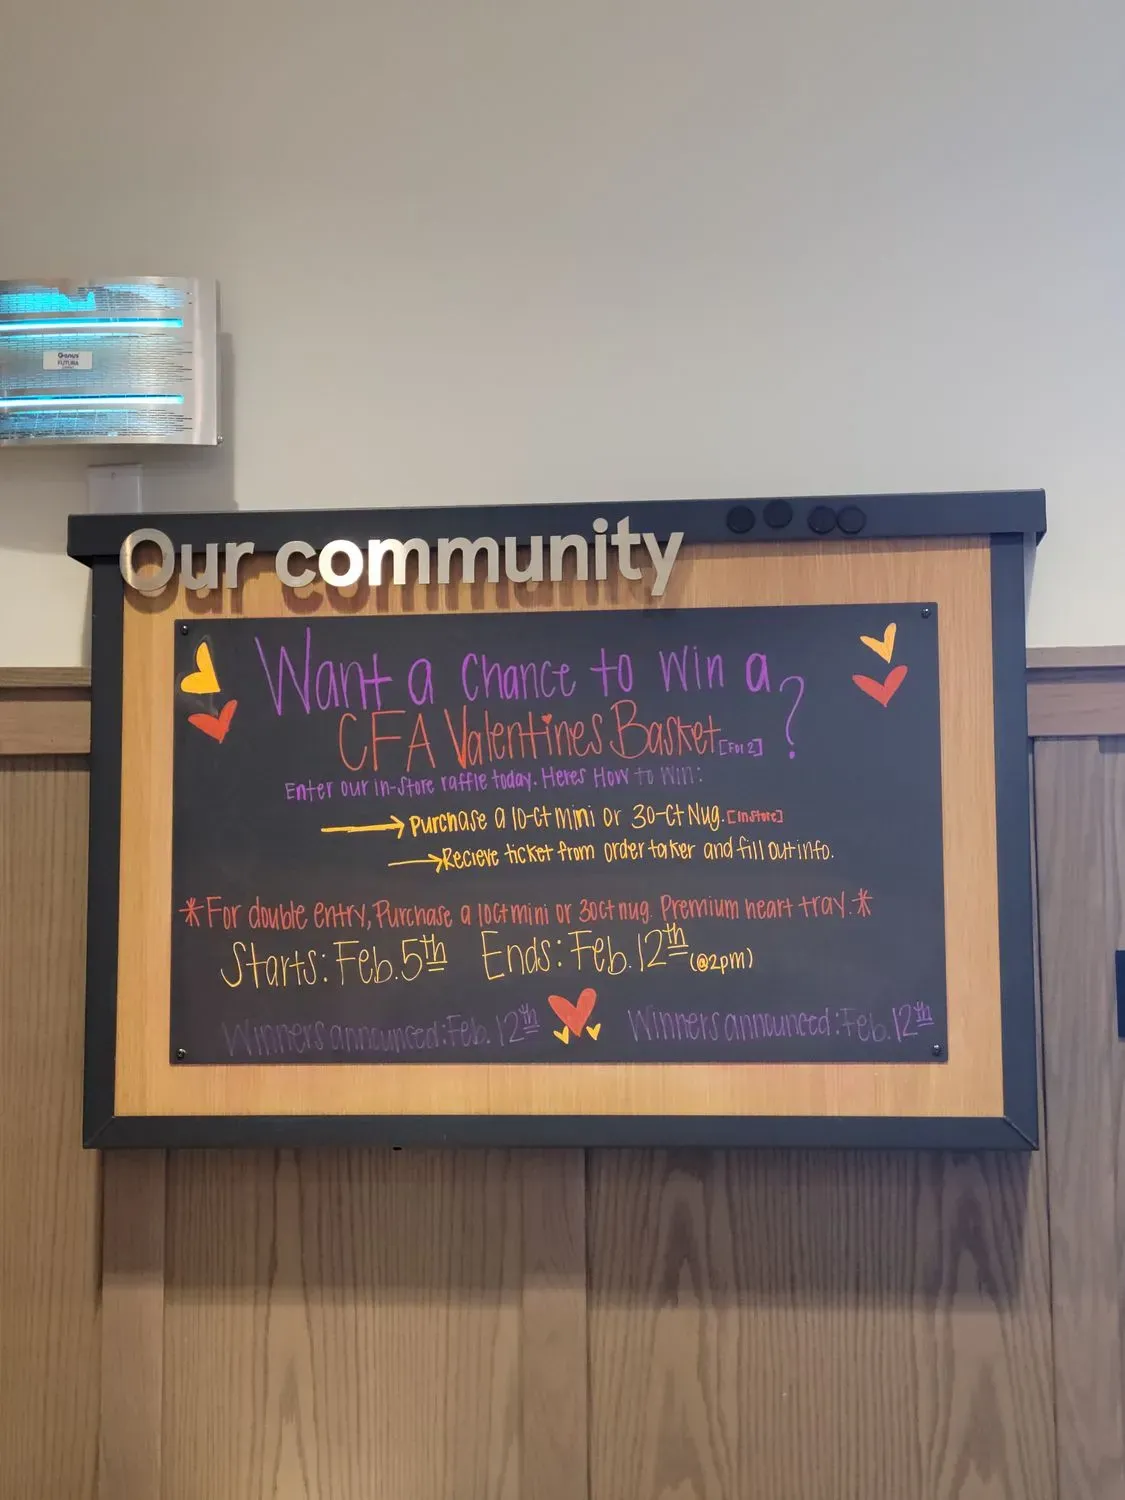 Genus
FUTURA
Our community
Want a chance to win a
CFA Valentines Basket [For 2] ?
Enter our in-store raffle today. Heres How to Win:
Purchase a 10-ct mini or 30-ct Nug. [Instore]
Recieve ticket from order taker and fill out info.
*For double entry, Purchase a 10ct mini or 30ct nug. Premium heart tray.*
Starts: Feb. 5th Ends: Feb. 12th (@2pm)
Winners announced: Feb. 12th Winners announced: Feb. 12th